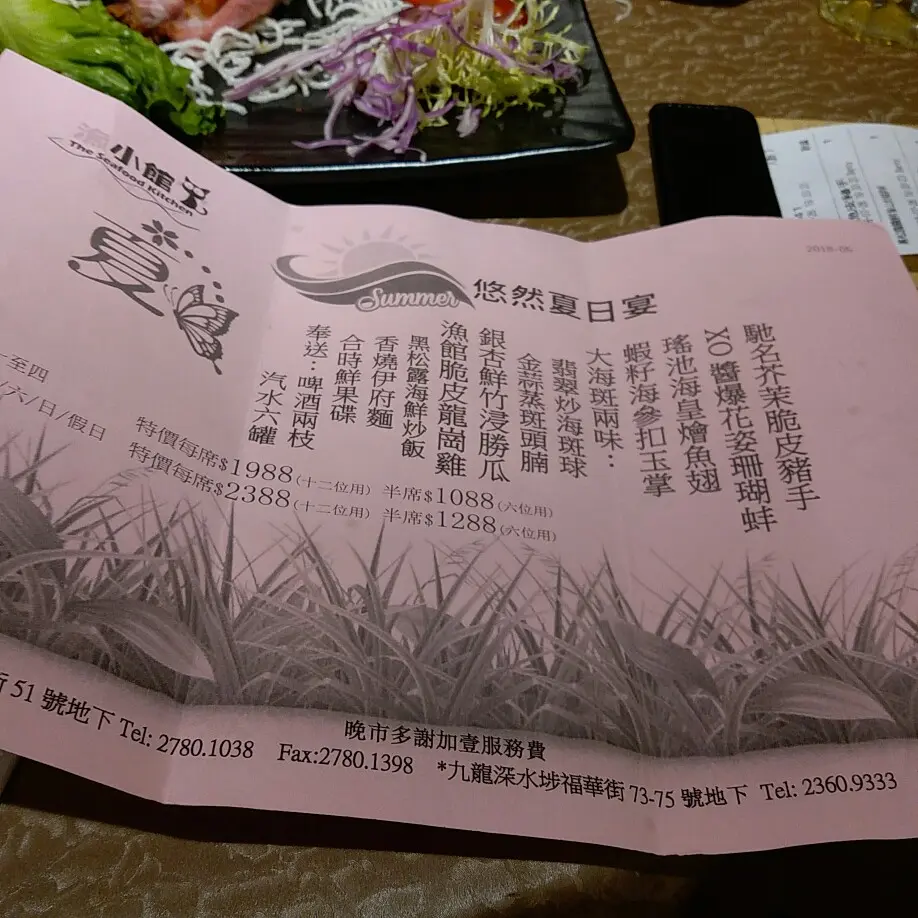 小館
The Seafood Kitchen
夏
2018-06
Summer
悠然夏日宴
馳名芥茉脆皮豬手
XO醬爆花姿珊瑚蚌
瑤池海皇燴魚翅
蝦籽海參扣玉掌
大海斑兩味：
翡翠炒海斑球
金蒜蒸斑頭腩
銀杏鮮竹浸勝瓜
漁館脆皮龍崗雞
黑松露海鮮炒飯
香燒伊府麵
合時鮮果碟
奉送：啤酒兩枝
汽水六罐
至四
特價每席$1988(十二位用) 半席$1088(六位用)
/六/日/假日
特價每席$2388(十二位用) 半席$1288(六位用)
晚市多謝加壹服務費
51 號地下 Tel: 2780.1038 Fax:2780.1398 *九龍深水埗福華街 73-75 號地下 Tel: 2360.9333